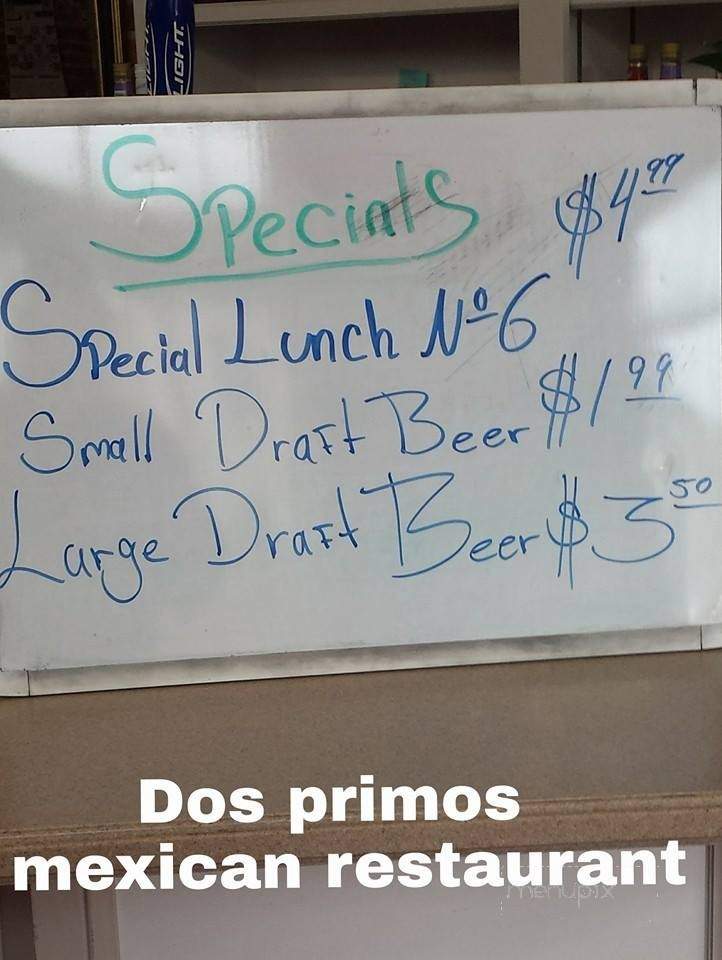 LIGHT
LIGHT.
Specials $4.99
Special Lunch Nº 6
Small Draft Beer $1.99
Large Draft Beer $3.50
Dos primos
mexican restaurant
menupix